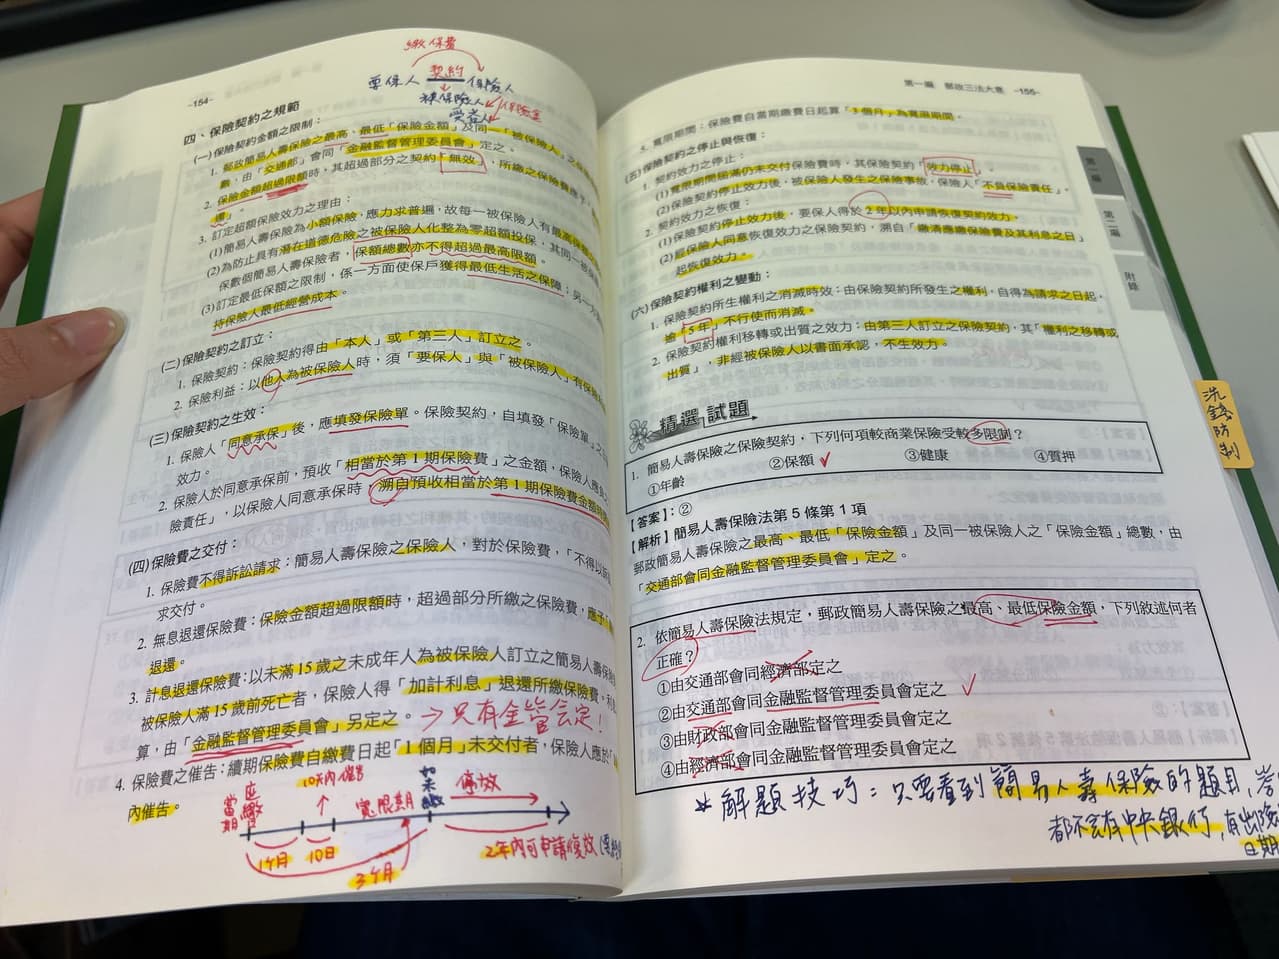 繳保費
要保人 契約 保險人
被保險人 保險金
受益人
-154-
四、保險契約之規範
(一)保險契約金額之限制：
1. 郵政簡易人壽保險之最高、最低「保險金額」及同一「被保險人」之保
數，由「交通部」會同「金融監督管理委員會」定之。
2. 保險金額超過限額時，其超過部分之契約「無效」，所繳之保險費應
還」。
3. 訂定超額保險效力之理由：
(1)簡易人壽保險為小額保險，應力求普遍，故每一被保險人有最高保
(2)為防止具有潛在道德危險之被保險人化整為零超額投保，其同一被
保數個簡易人壽保險者，保額總數亦不得超過最高限額。
(3)訂定最低保額之限制，係一方面使保戶獲得最低生活之保障；另一方
持保險人最低經營成本。
(二)保險契約之訂立：
1. 保險契約：保險契約得由「本人」或「第三人」訂立之。
2. 保險利益：以他人為被保險人時，須「要保人」與「被保險人」有保
(三)保險契約之生效：
1. 保險人「同意承保」後，應填發保險單。保險契約，自填發「保險單」之
效力。
2. 保險人於同意承保前，預收「相當於第1期保險費」之金額，保險人應負
險責任」，以保險人同意承保時，溯自預收相當於第1期保險費金額時
(四)保險費之交付：
1. 保險費不得訴訟請求：簡易人壽保險之保險人，對於保險費，「不得以訴
求交付。
2. 無息退還保險費：保險金額超過限額時，超過部分所繳之保險費，應予
退還。
3. 計息退還保險費：以未滿15歲之未成年人為被保險人訂立之簡易人壽保
被保險人滿15歲前死亡者，保險人得「加計利息」退還所繳保險費，利
算，由「金融監督管理委員會」另定之。→只有金管會定！
4. 保險費之催告：續期保險費自繳費日起「1個月」未交付者，保險人應於
內催告。
當期 應繳日 10天內催告 寬限期 如未繳 停效
1個月 10日 3個月 2年內可申請復效
第一編 郵政三法大意 -155-
5. 寬限期間：保險費自當期繳費日起算「3個月」為寬限期間。
(五)保險契約之停止與恢復：
1. 契約效力之停止：
(1)寬限期間屆滿仍未交付保險費時，其保險契約「效力停止」。
(2)保險契約停止效力後，被保險人發生之保險事故，保險人「不負保險責任」。
2. 契約效力之恢復：
(1)保險契約停止效力後，要保人得於2年以內申請恢復契約效力。
(2)經保險人同意恢復效力之保險契約，溯自「繳清應繳保險費及其利息之日」
起恢復效力。
(六)保險契約權利之變動：
1. 保險契約所生權利之消滅時效：由保險契約所發生之權利，自得為請求之日起，
逾「5年」不行使而消滅。
2. 保險契約權利移轉或出質之效力：由第三人訂立之保險契約，其「權利之移轉或
出質」，非經被保險人以書面承認，不生效力。
第一編
第二編
附錄
洗錢防制
精選試題
1. 簡易人壽保險之保險契約，下列何項較商業保險受較多限制？
①年齡 ②保額 ③健康 ④質押
【答案】：②
【解析】簡易人壽保險法第5條第1項
郵政簡易人壽保險之最高、最低「保險金額」及同一被保險人之「保險金額」總數，由
「交通部會同金融監督管理委員會」定之。
2. 依簡易人壽保險法規定，郵政簡易人壽保險之最高、最低保險金額，下列敘述何者
正確？
①由交通部會同經濟部定之
②由交通部會同金融監督管理委員會定之
③由財政部會同金融監督管理委員會定之
④由經濟部會同金融監督管理委員會定之
*解題技巧：只要看到簡易人壽保險的題目，
都不會有中央銀行，有出
日期